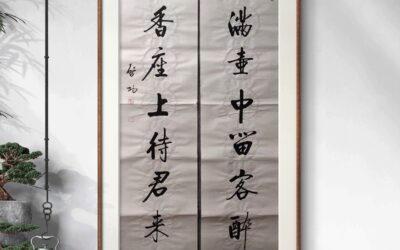 满壶中留客醉
香座上待君来
启功